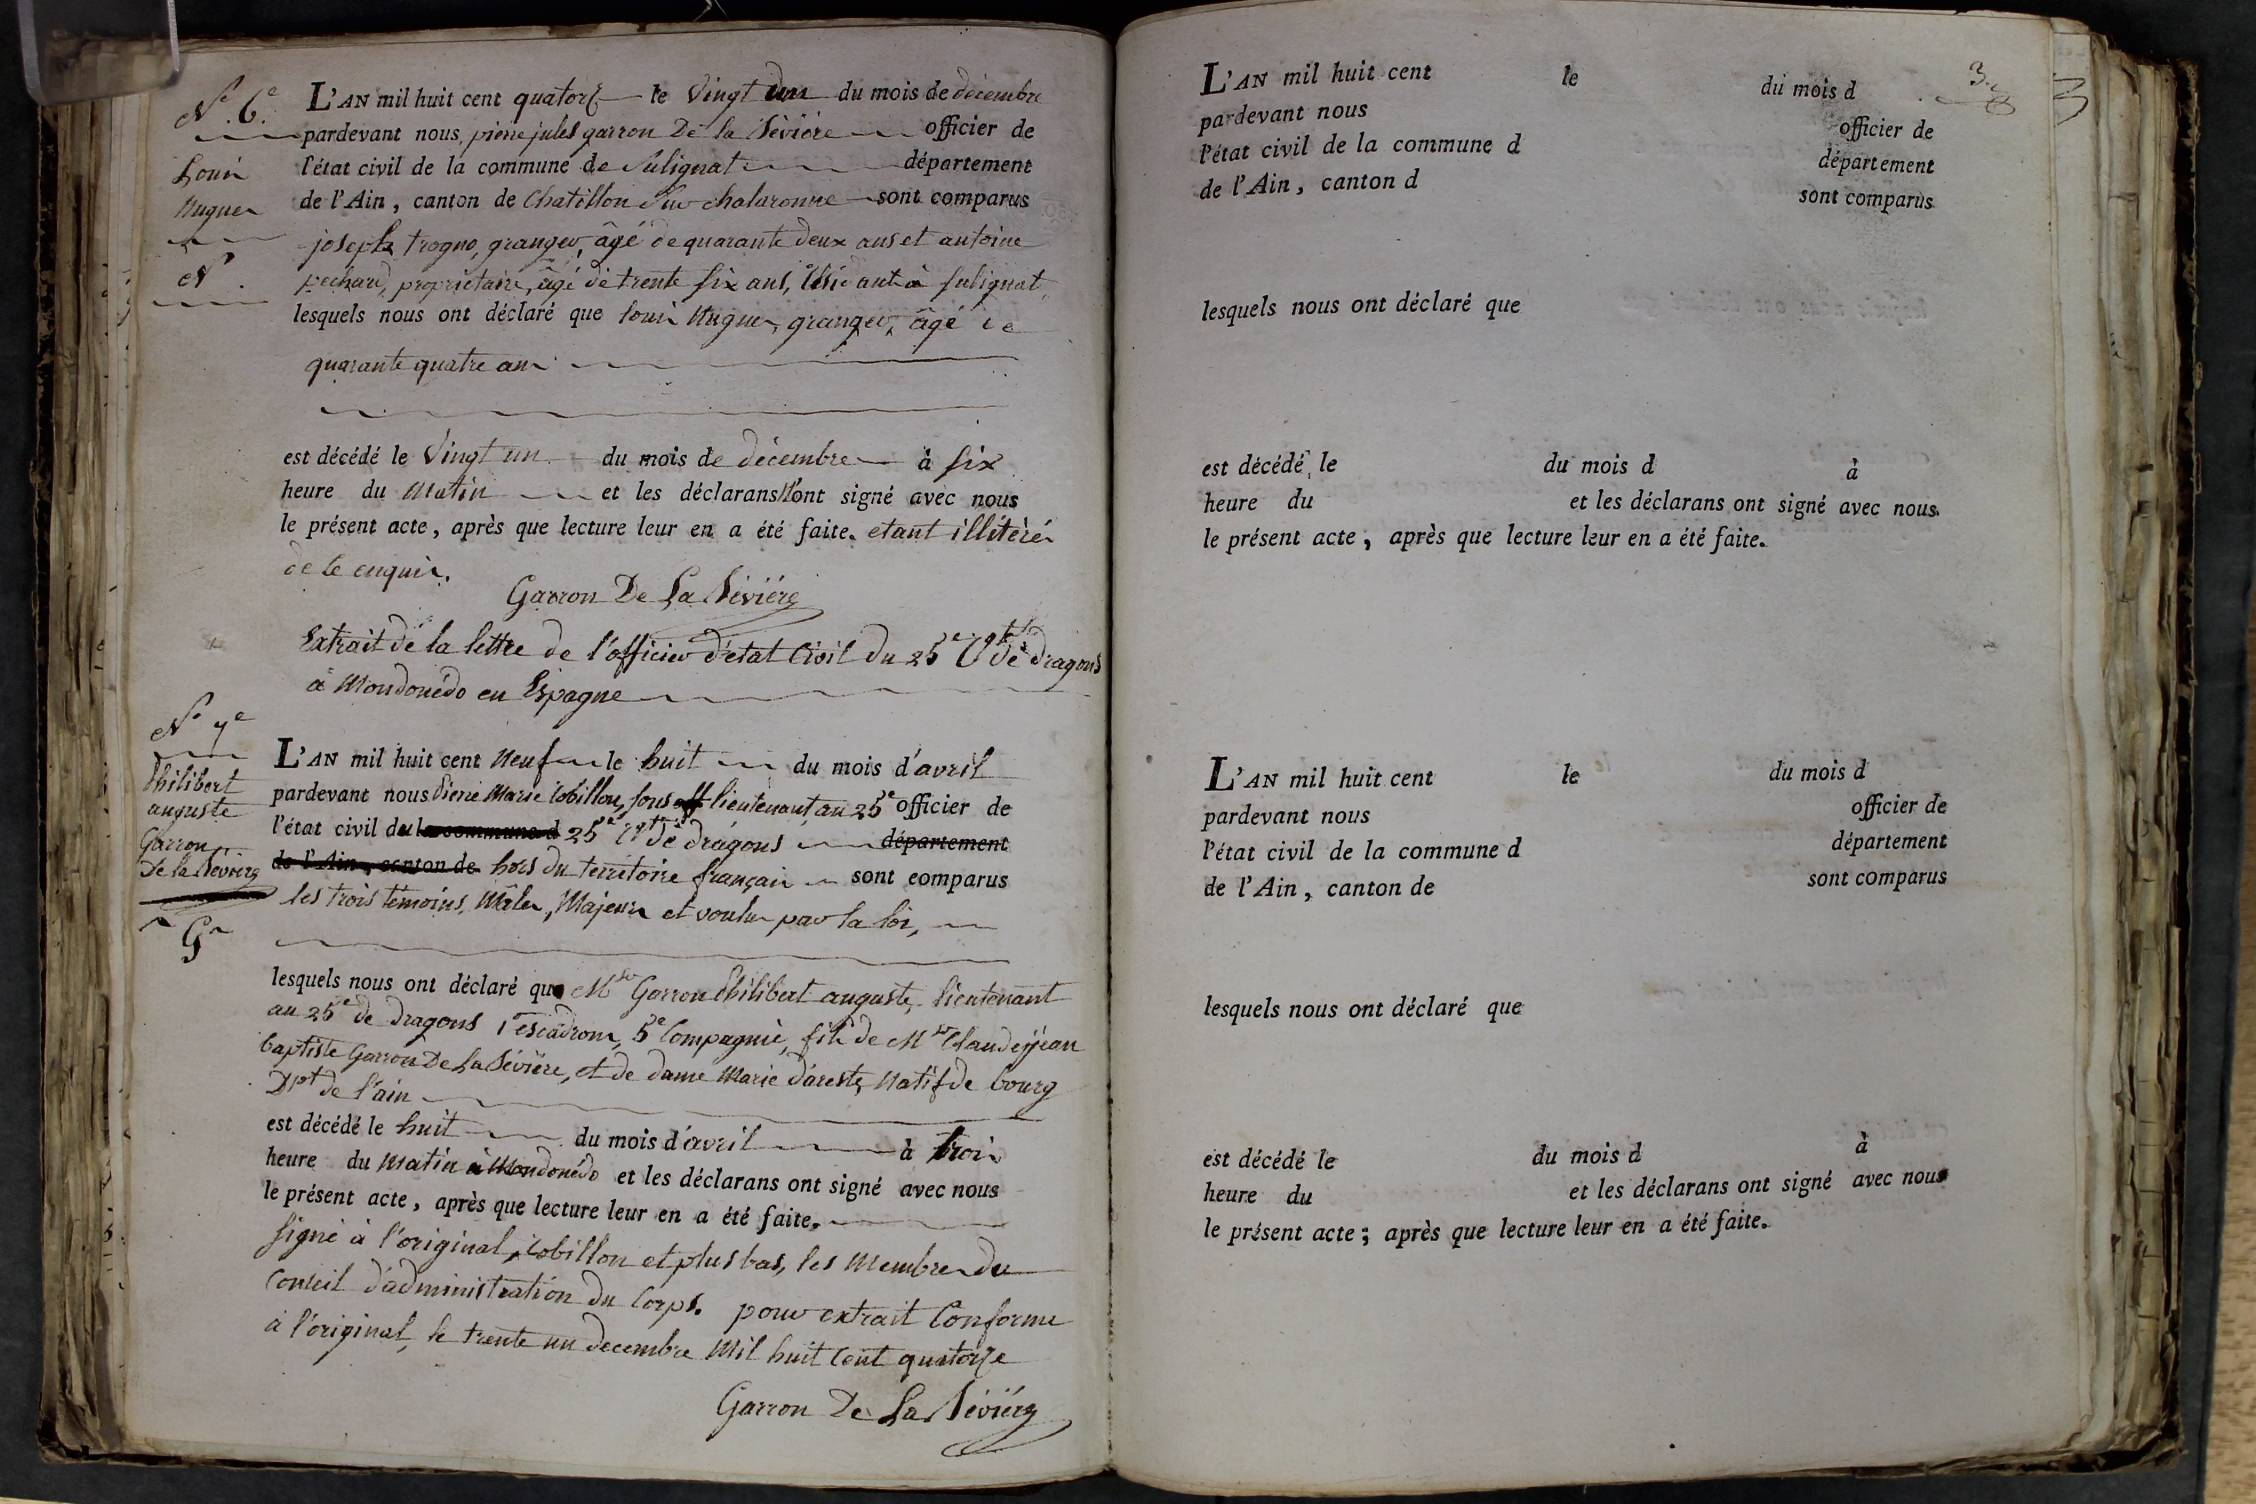 N.° 6.e
Louis
Hugues
N.
L'AN mil huit cent quatorze le vingt un du mois de décembre
pardevant nous pierre jules garron De la Sévière officier de
l'état civil de la commune de Sulignat département
de l'Ain, canton de Chatillon Sur chalaronne sont comparus
joseph trogno, granger, âgé de quarante deux ans et antoine
pechard, propriétaire, âgé de trente six ans, résidant à Sulignat,
lesquels nous ont déclaré que louis Hugues, granger, âgé de
quarante quatre ans
est décédé le vingt un du mois de décembre à six
heure du matin et les déclarans n'ont signé avec nous
le présent acte, après que lecture leur en a été faite. etant illitérés
de ce enquis.
Garron De La Sévière
Extrait de la lettre de l'officier d'état Civil du 25e Rgt de dragons
à Mondonédo en Espagne
N° 7e
Philibert
auguste
Garron
De la Sévière
G
L'AN mil huit cent neuf le huit du mois d'avril
pardevant nous Pierre Marie Cobillon, sous lieutenant au 25e officier de
l'état civil du la commune d 25e Rgt de dragons département
de l'Ain, canton de hors du territoire français sont comparus
les trois témoins, Mâles, Majeurs et voulus par la loi,
lesquels nous ont déclaré que Mr Garron Philibert auguste, lieutenant
au 25e de dragons 1er escadron, 5e Compagnie, fils de Mr Claude jean
baptiste Garron De La Sévière, et de dame Marie d'areste, natif de bourg
Dpt de l'ain
est décédé le huit du mois d'avril à trois
heure du matin à Mondonédo et les déclarans ont signé avec nous
le présent acte, après que lecture leur en a été faite.
signé à l'original, Cobillon et plus bas, les Membres du
Conseil d'administration du Corps. pour extrait Conforme
à l'original, le trente un decembre Mil huit Cent quatorze
Garron De La Sévière
3.
L'AN mil huit cent le du mois d
pardevant nous officier de
l'état civil de la commune d département
de l'Ain, canton d sont comparus
lesquels nous ont déclaré que
est décédé le du mois d à
heure du et les déclarans ont signé avec nous
le présent acte, après que lecture leur en a été faite.
L'AN mil huit cent le du mois d
pardevant nous officier de
l'état civil de la commune d département
de l'Ain, canton de sont comparus
lesquels nous ont déclaré que
est décédé le du mois d à
heure du et les déclarans ont signé avec nous
le présent acte; après que lecture leur en a été faite.